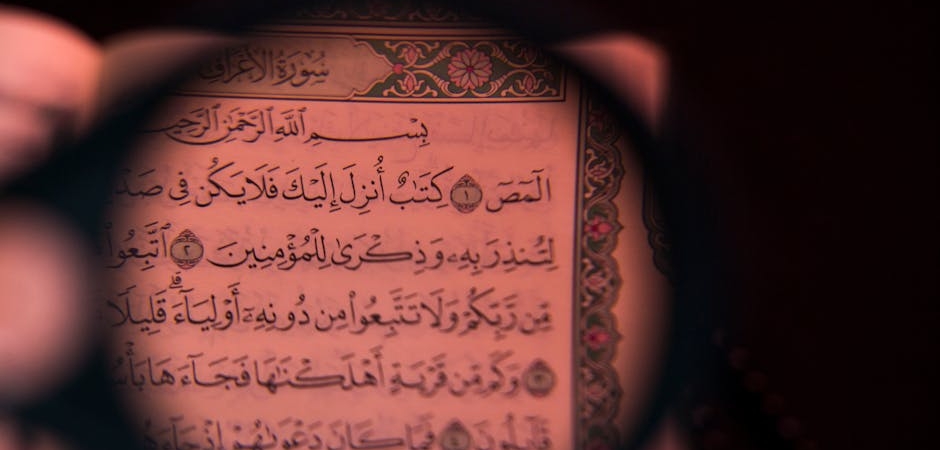 سُورَةُ الأَعْرَافِ
بِسْمِ ٱللَّهِ ٱلرَّحْمَٰنِ ٱلرَّحِيـ
الٓمٓصٓ ١ كِتَٰبٌ أُنزِلَ إِلَيْكَ فَلَا يَكُن فِى صَدْ
لِتُنذِرَ بِهِۦ وَذِكْرَىٰ لِلْمُؤْمِنِينَ ٢ ٱتَّبِعُوا۟
مِّن رَّبِّكُمْ وَلَا تَتَّبِعُوا۟ مِن دُونِهِۦٓ أَوْلِيَآءَ ۗ قَلِيلًا
٣ وَكَم مِّن قَرْيَةٍ أَهْلَكْنَٰهَا فَجَآءَهَا بَأْسُ
قَآئِلُونَ ٤ فَمَا كَانَ دَعْوَىٰهُمْ إِذْ جَآءَهُ